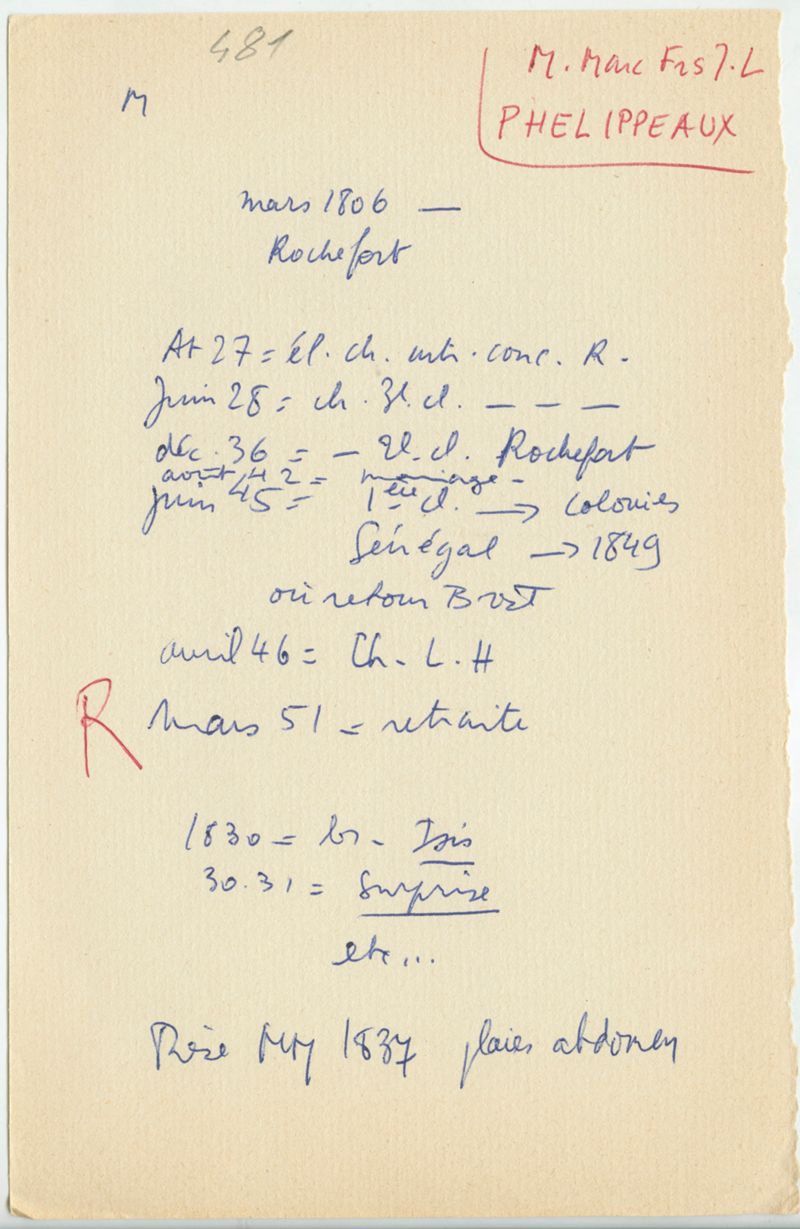 481
M. Marc Frs J. L
PHELIPPEAUX
M
mars 1806 —
Rochefort
At 27 = él. ch. entr. conc. R.
Juin 28 = ch. 3e. cl. — — —
déc. 36 = — 2e. cl. Rochefort
août 42 = mariage -
juin 45 = 1ère cl. → colonies
Sénégal → 1849
où retour Brest
avril 46 = Ch. L. H
R mars 51 = retraite
1830 = br - Isis
30.31 = Surprise
etc...
Thèse 1837 plaies abdomen